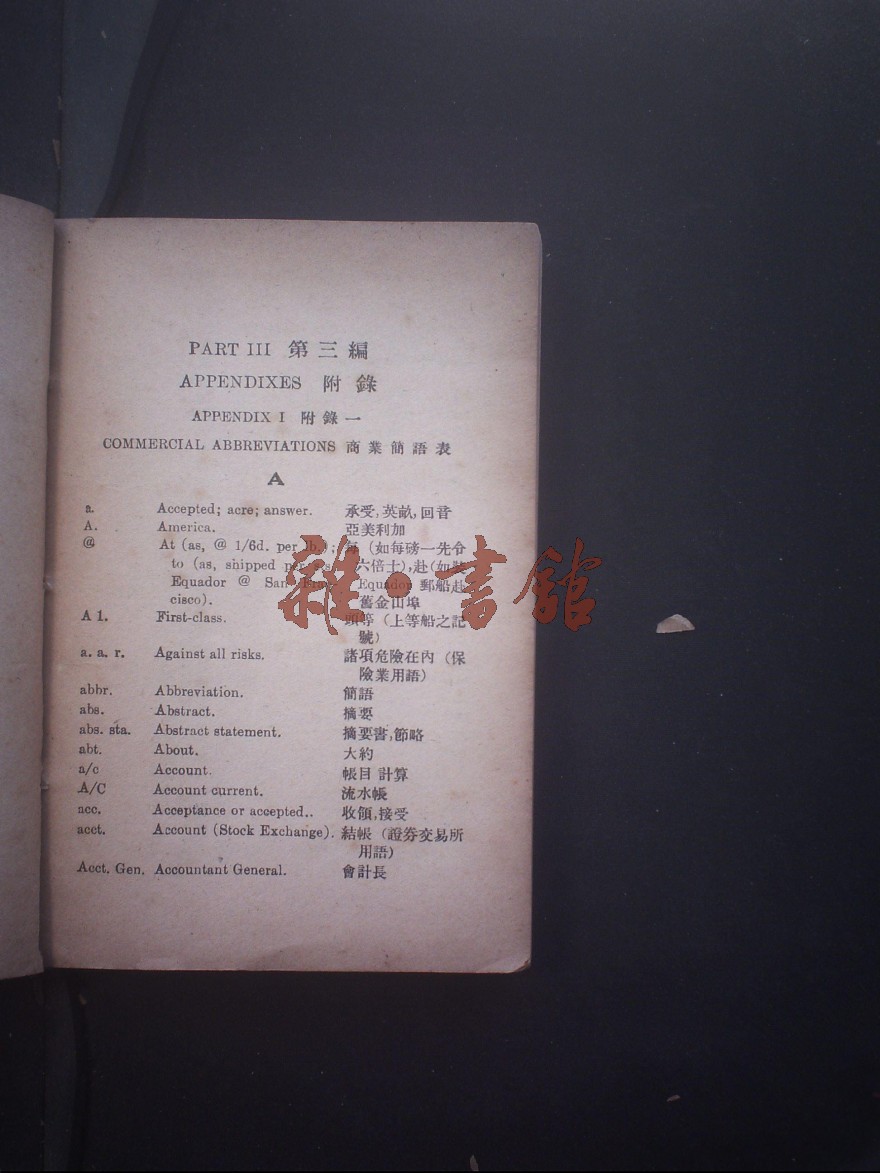 PART III 第三編
APPENDIXES 附錄
APPENDIX I 附錄一
COMMERCIAL ABBREVIATIONS 商業簡語表
A
a. Accepted; acre; answer. 承受,英畝,回音
A. America. 亞美利加
@ At (as, @ 1/6d. per lb.); 每 (如每磅一先令
to (as, shipped per 六倍士),赴(如
Equador @ San Fran- Equador 郵船赴
cisco). 舊金山埠
A 1. First-class. 頭等 (上等船之記
號)
a. a. r. Against all risks. 諸項危險在內 (保
險業用語)
abbr. Abbreviation. 簡語
abs. Abstract. 摘要
abs. sta. Abstract statement. 摘要書,節略
abt. About. 大約
a/c Account. 帳目 計算
A/C Account current. 流水帳
acc. Acceptance or accepted.. 收領,接受
acct. Account (Stock Exchange). 結帳 (證券交易所
用語)
Acct. Gen. Accountant General. 會計長
雜·書館